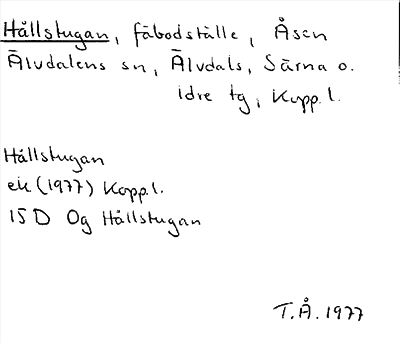 Hållstugan, fäbodställe, Åsen
Älvdalens sn, Älvdals, Särna o.
Idre tg, Kopp. l.
Hållstugan
ek (1977) Kopp. l.
15 D Og Hållstugan
T.Å. 1977